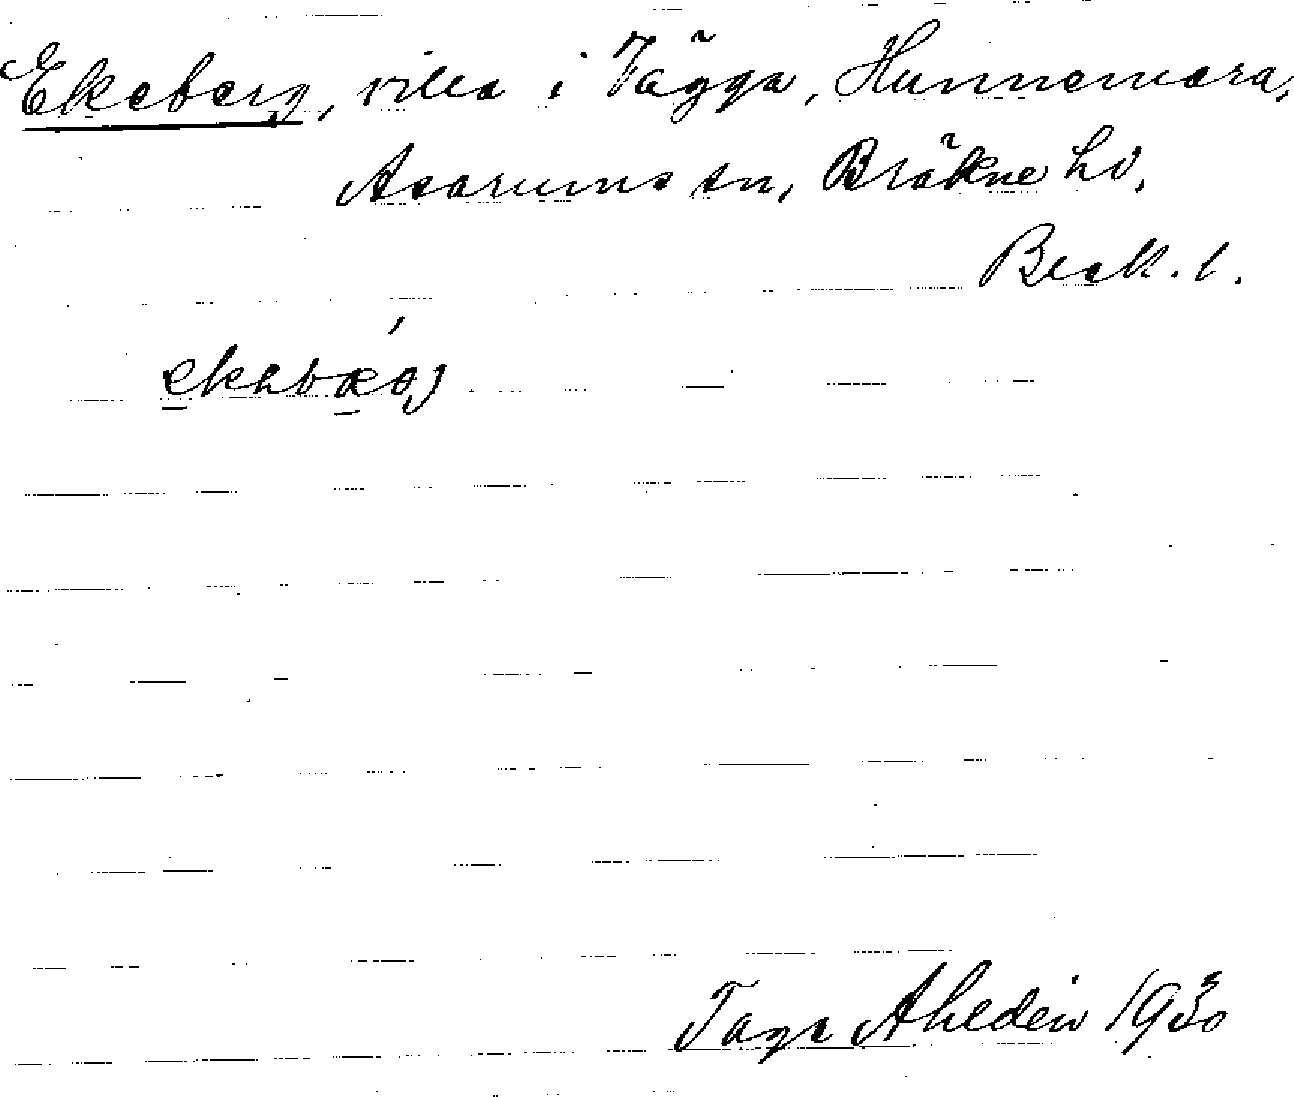 Ekeberg, villa i Tägga, Hunnemara,
Asarums sn, Bräkne hd.
Blek. l.
Tage Ahldén 1930